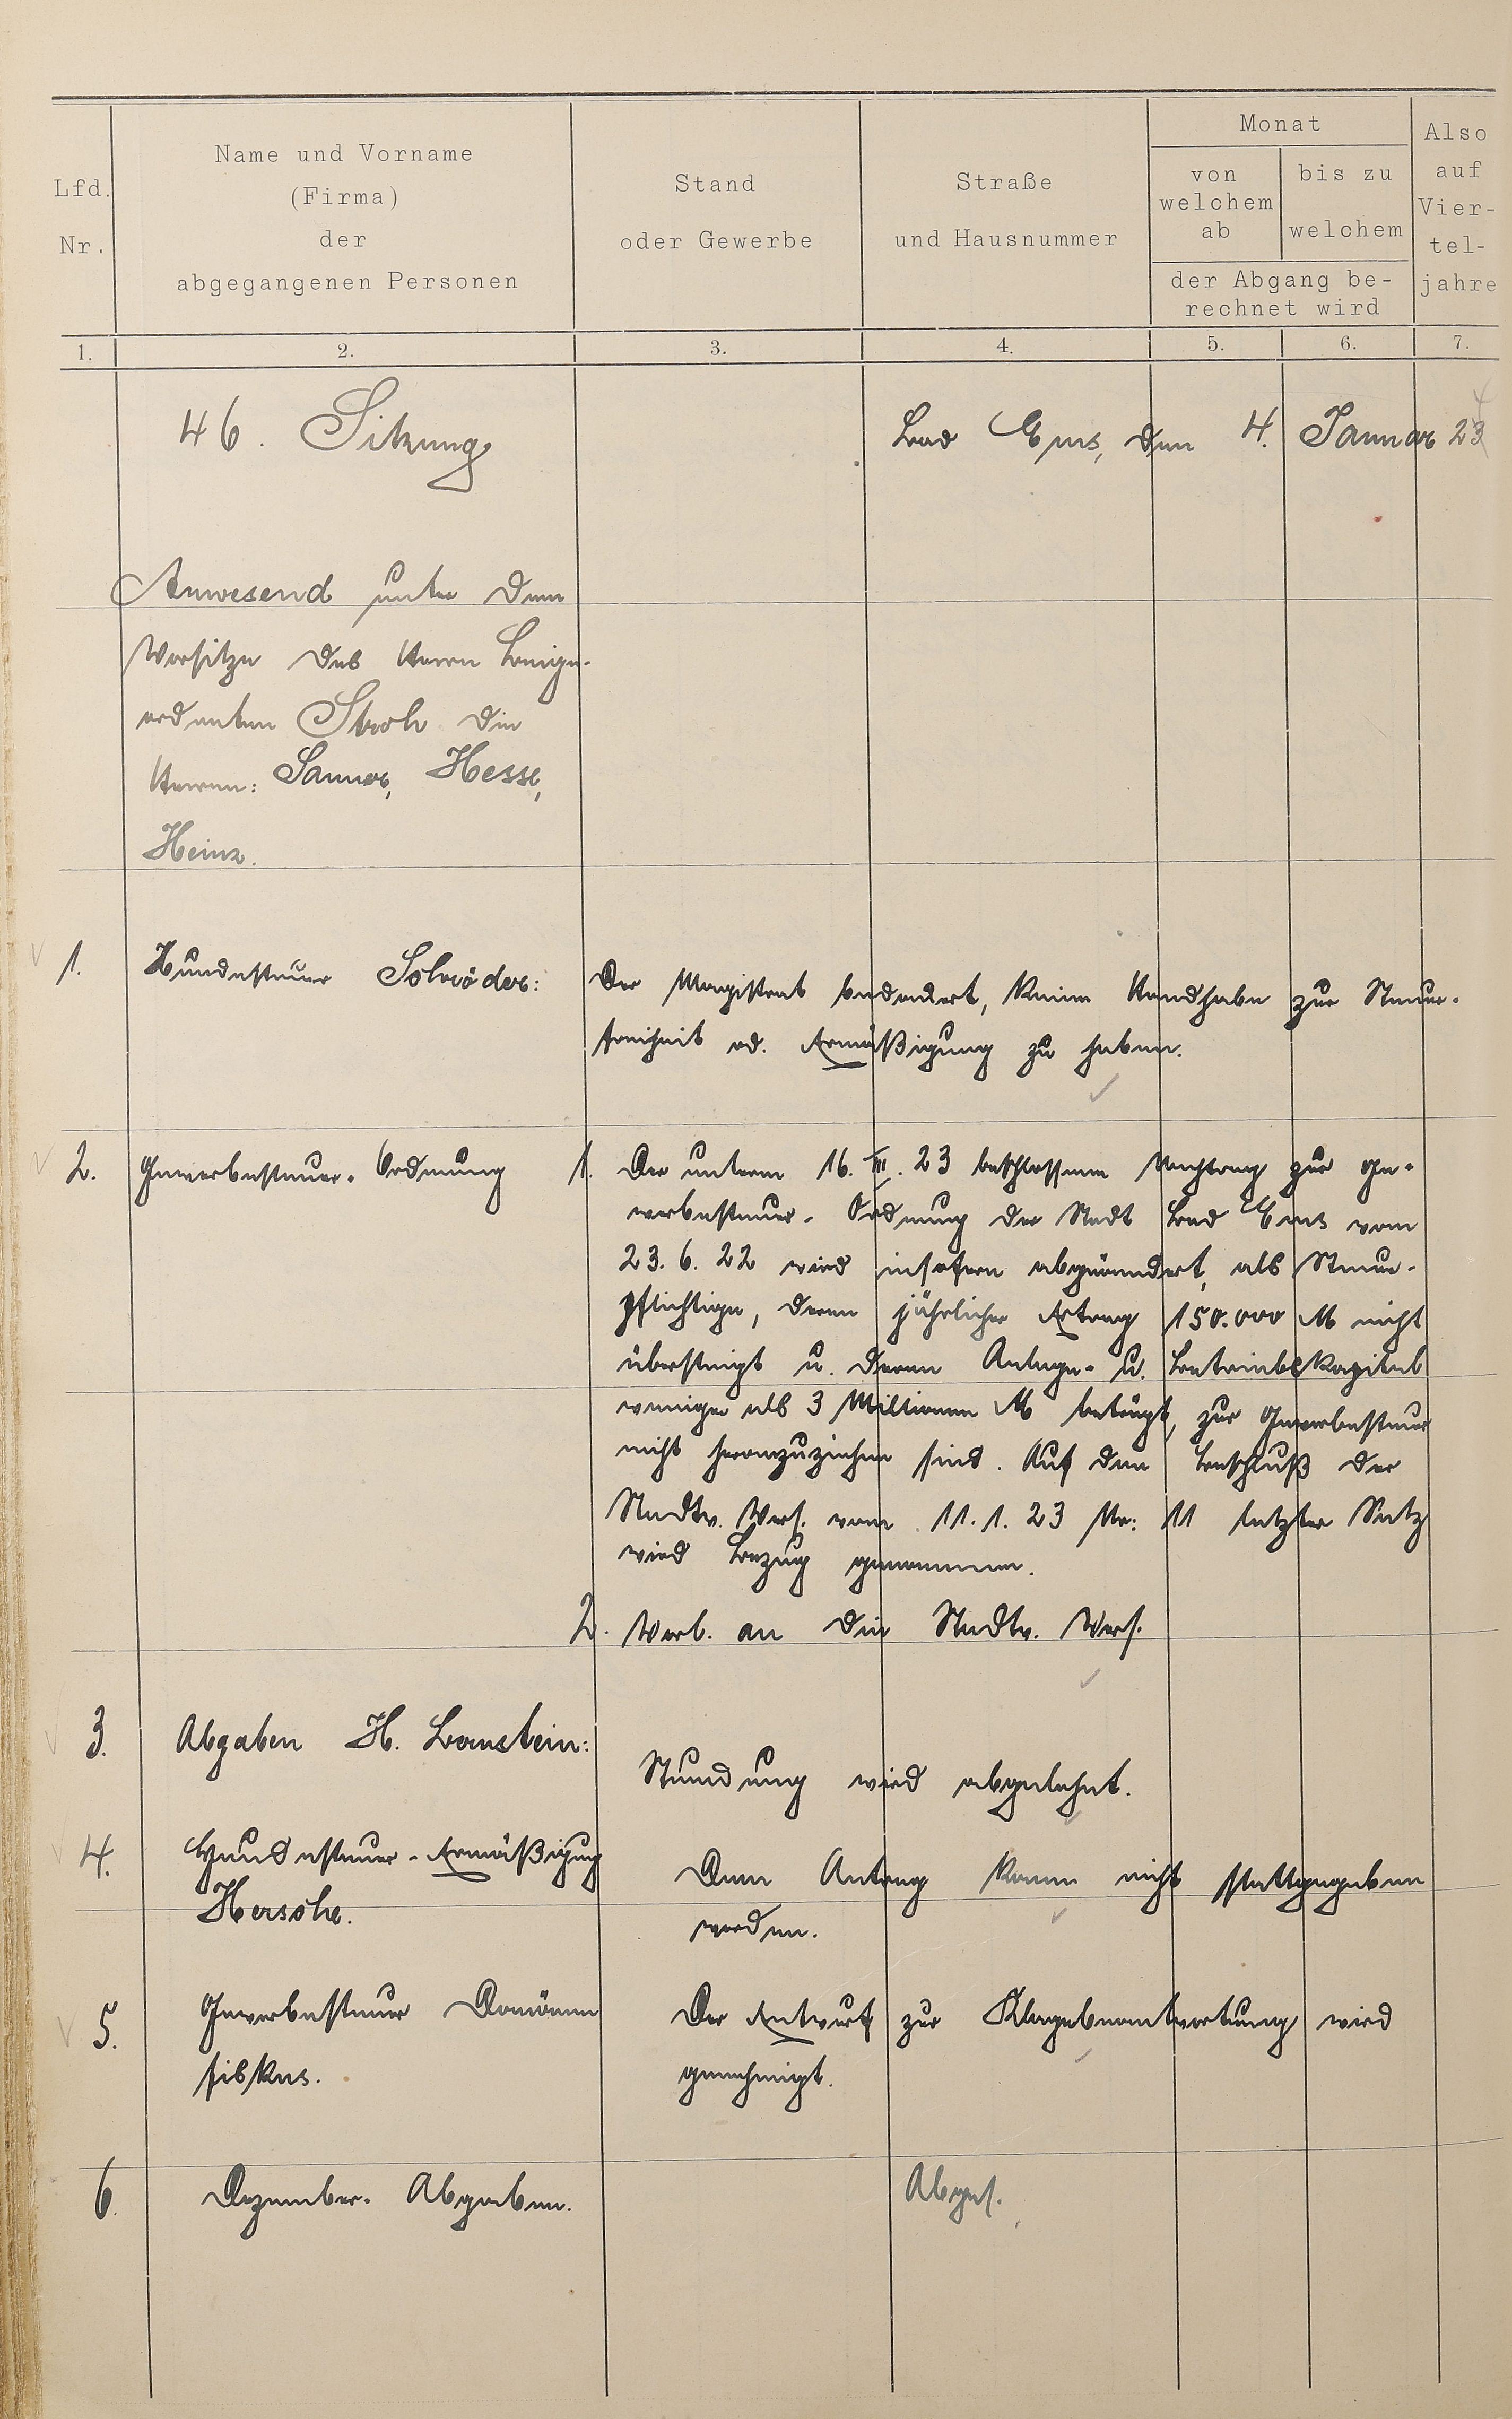 Lfd. Nr.
Name und Vorname
(Firma)
der
abgegangenen Personen
Stand
oder Gewerbe
Straße
und Hausnummer
Monat
von welchem ab
bis zu welchem
der Abgang be-
rechnet wird
Also
auf
Vier-
tel-
jahre
1. 2. 3. 4. 5. 6. 7.
46. Sitzung
Bad Ems, den 4. Januar 23
4
Anwesend unter dem
Vorsitze des Herrn Beige-
ordneten Stroh die
Herren: Sanner, Hesse,
Heinz.
1. Hundesteuer Schröder:
Der Magistrat bedauert, keine Handhabe zur Steuer-
freiheit od. Ermäßigung zu haben.
2. Gewerbesteuer-Ordnung
1. Der unterm 16. III. 23 beschlossene Nachtrag zur Ge-
werbesteuer-Ordnung der Stadt Bad Ems vom
23. 6. 22 wird insofern abgeändert, als Steuer-
pflichtige, deren jährlicher Ertrag 150.000 M nicht
übersteigt u. deren Anlage- u. Betriebskapital
weniger als 3 Millionen M beträgt, zur Gewerbesteuer
nicht heranzuziehen sind. Auf den Beschluß der
Stadtv. Vers. vom 11. 1. 23 Nr: 11 letzter Satz
wird Bezug genommen.
2. Vorl. an die Stadtv. Vers.
3. Abgaben H. Bernstein:
Stundung wird abgelehnt.
4. Hundesteuer-Ermäßigung
Hersche.
Dem Antrag kann nicht stattgegeben
werden.
5. Gewerbesteuer Domänen
fiskus.
Der Entwurf zur Klagebeantwortung wird
genehmigt.
6. Dezember-Abgaben.
Abges.